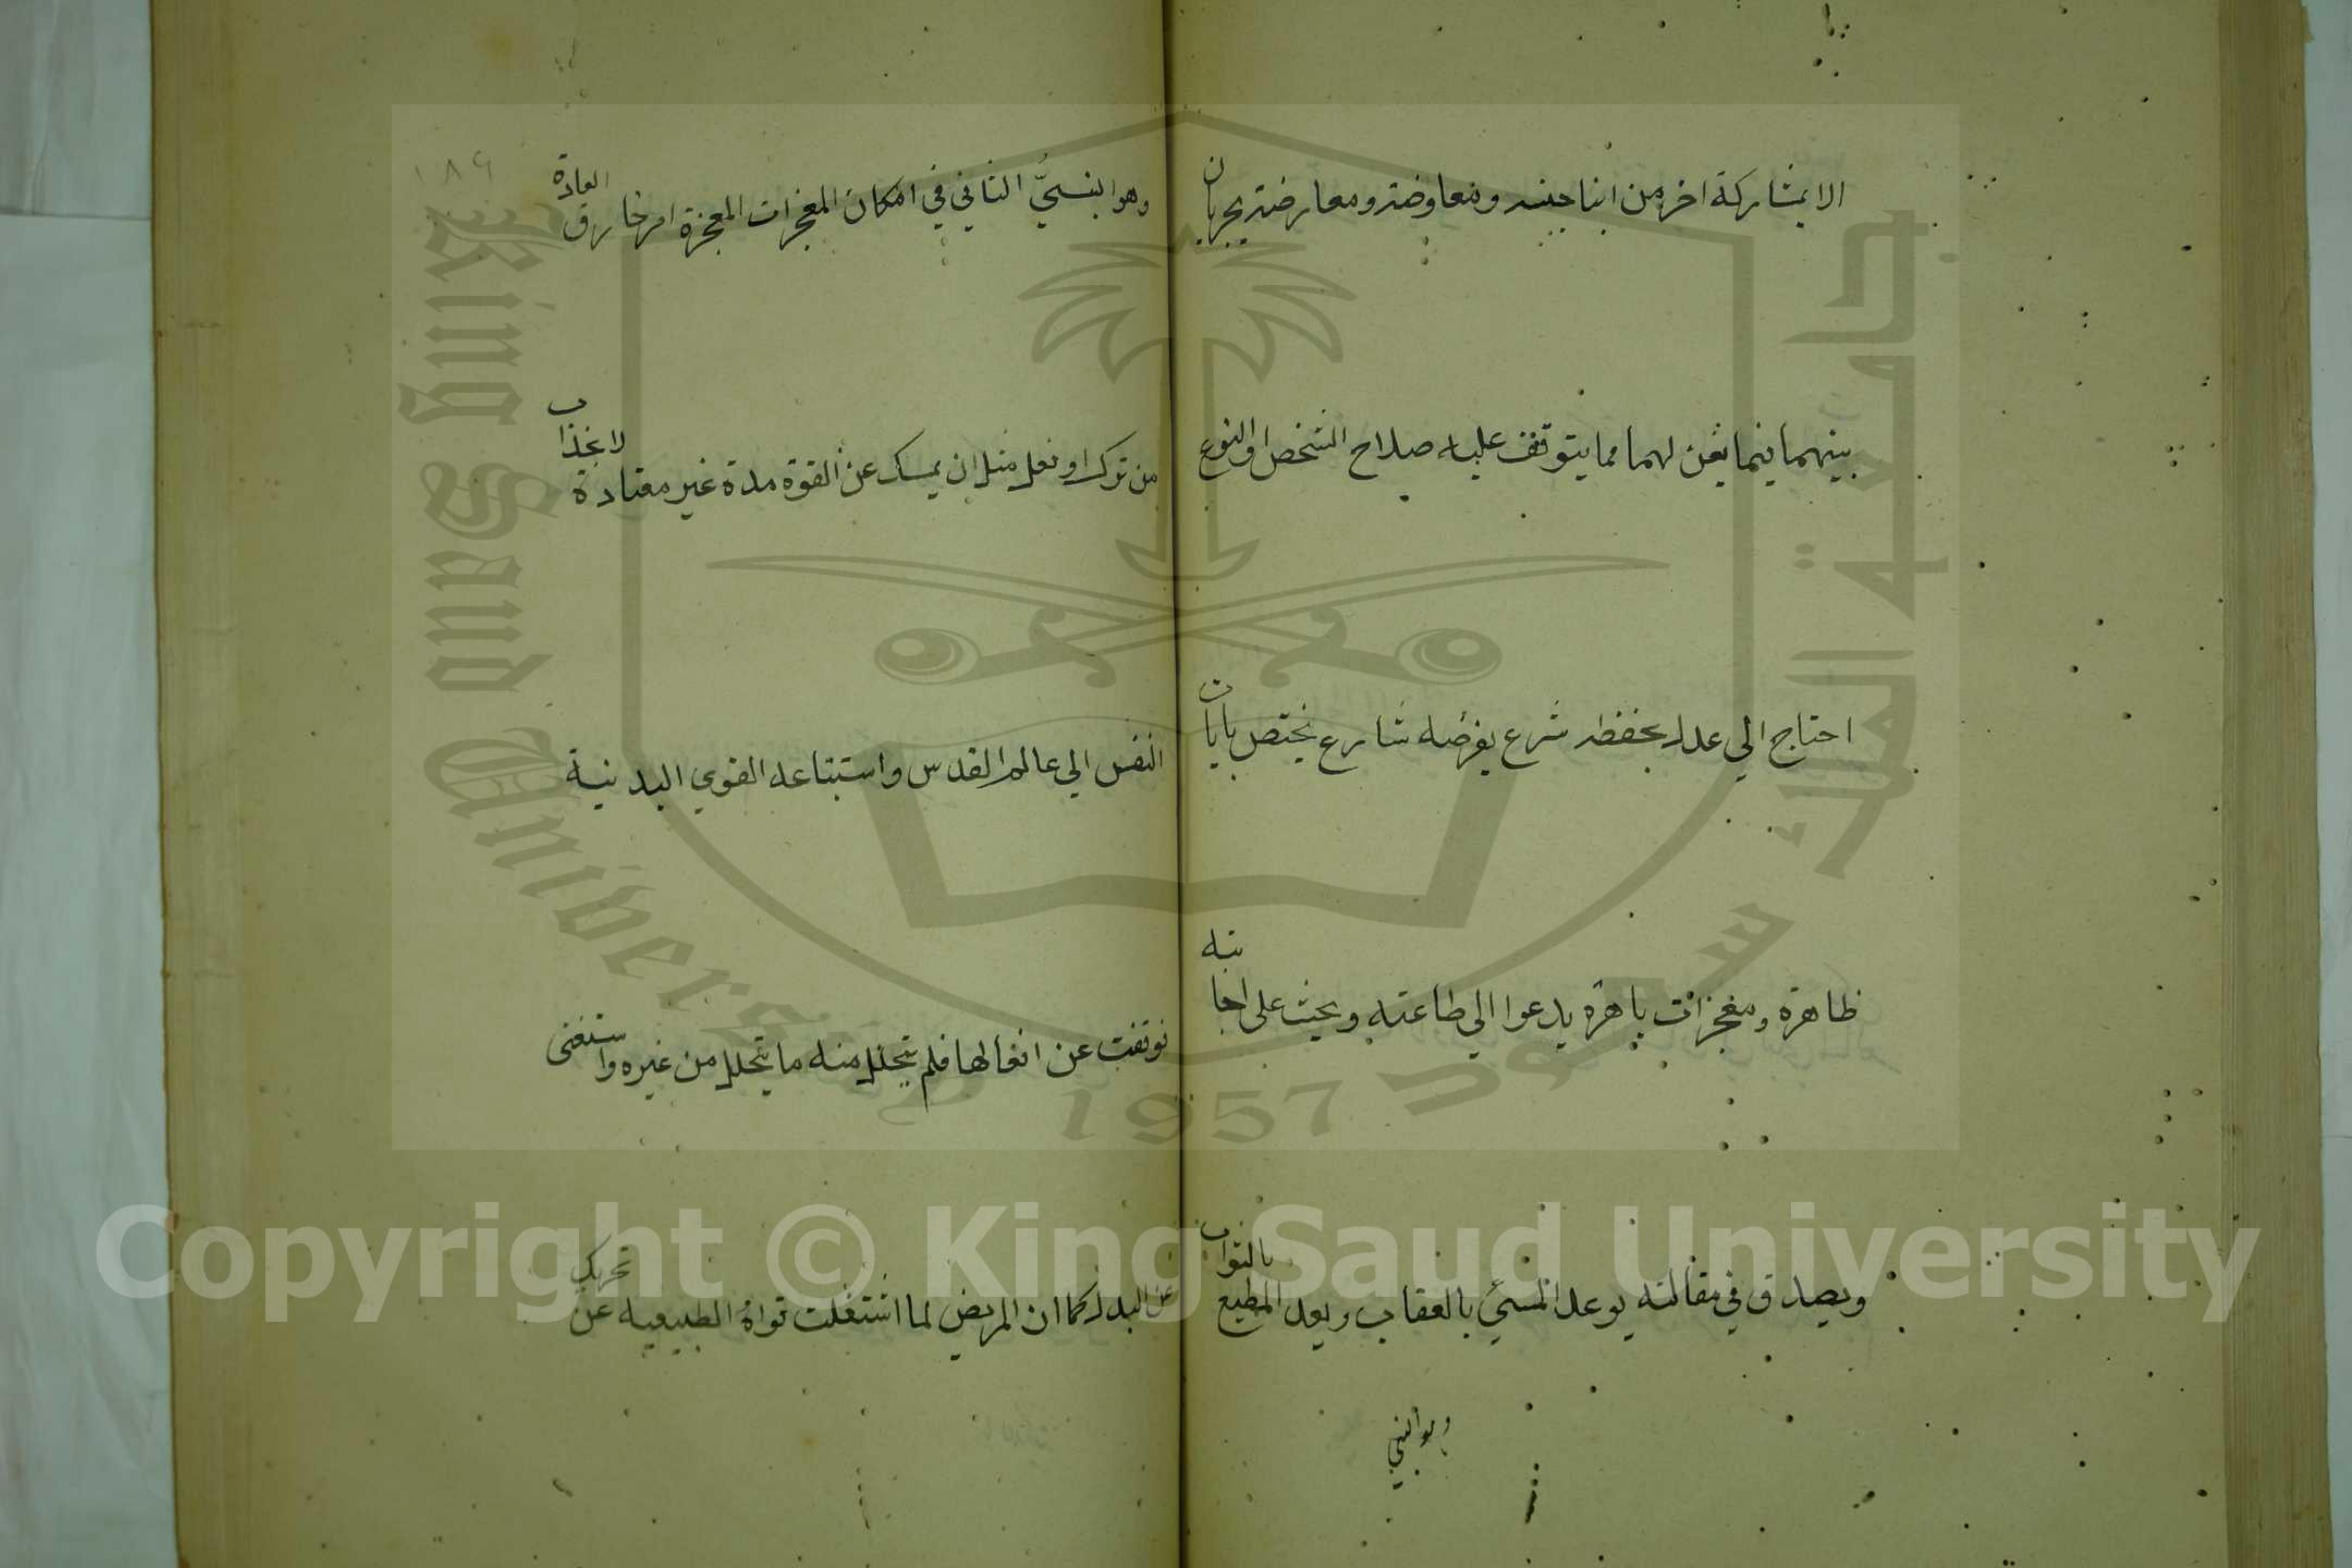 الا بمشاركة اخر من ابنا جنسه ومعاوضة ومعارضة يجريان
بينهما فيما يعن لهما مما يتوقف عليه صلاح الشخص او النوع
احتاج الي عدل يحفظه شرع يفرضه شارع يختص بايات
ظاهرة ومعجزات باهرة يدعوا الي طاعته ويحث على اجابته
ويصدق في مقالته يوعد المسئ بالعقاب ويعد المطيع بالثواب
وهو النبي
١٨٩
وهو النبيُّ الثاني في امكان المعجزات المعجزة امر خارق العادة
من ترك او فعل مثل ان يمسك عن القوة مدة غير معتادة لانجذاب
النفس الي عالم القدس واستتباعه القوي البدنية
فوقفت عن افعالها فلم يتحلل منه ما يتحلل من غيره واستغنى
عن البدل كما ان المريض لما اشتغلت قواه الطبيعية عن تحريك
جامعة الملك سعود
King Saud University
1957
Copyright © King Saud University